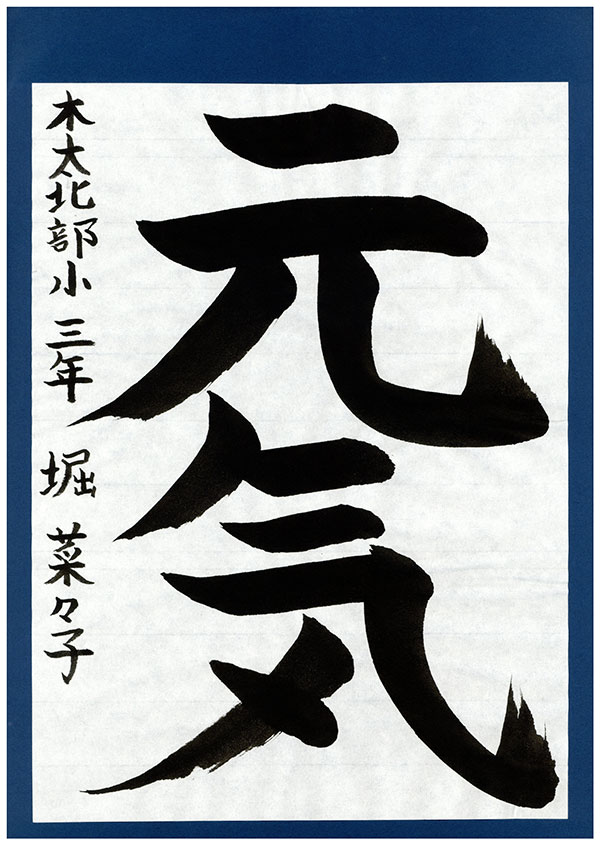 元気
木太北部小 三年 堀 菜々子